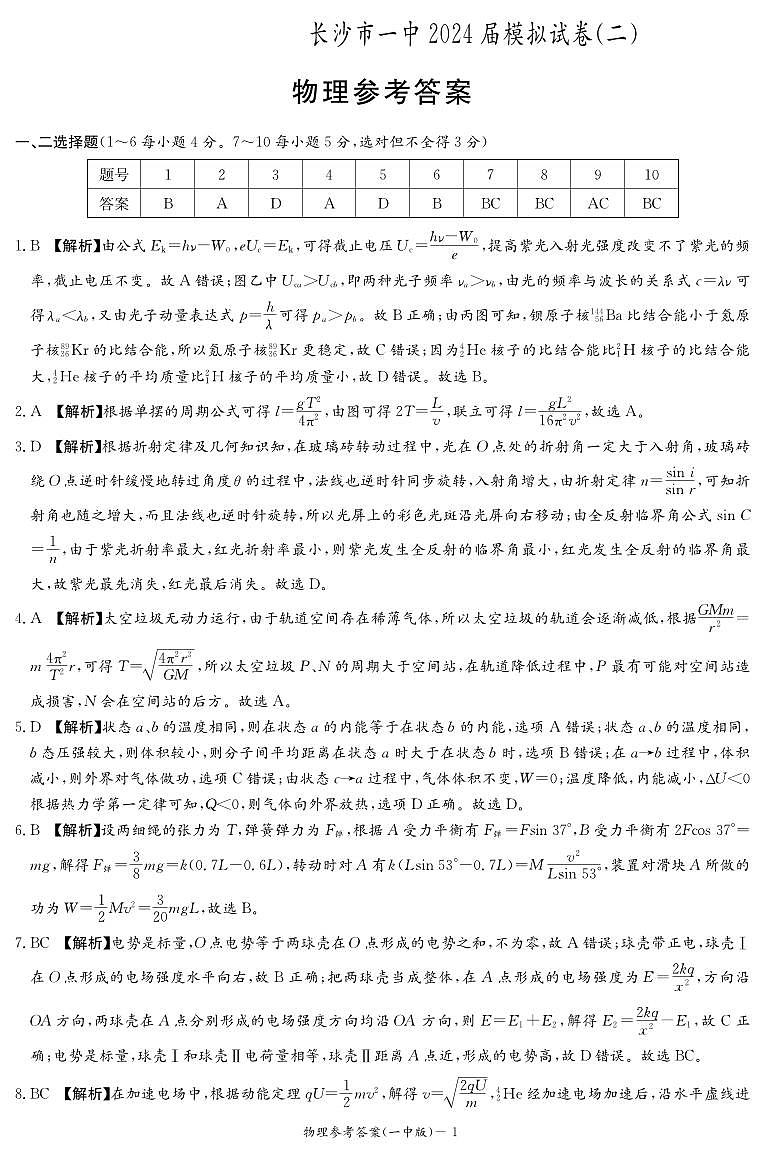 长沙市一中 2024 届模拟试卷(二)
物理参考答案
一、二选择题(1～6 每小题 4 分。7～10 每小题 5 分,选对但不全得 3 分)
题号 1 2 3 4 5 6 7 8 9 10
答案 B A D A D B BC BC AC BC
1. B 【解析】由公式 Eₖ=hν−W₀,eU꜀=Eₖ,可得截止电压 U꜀=(hν−W₀)/e,提高紫光入射光强度改变不了紫光的频
率,截止电压不变。故 A 错误;图乙中 U_ca>U_cb,即两种光子频率 ν_a>ν_b,由光的频率与波长的关系式 c=λν 可
得 λ_a<λ_b,又由光子动量表达式 p=h/λ 可得 p_a>p_b。故 B 正确;由两图可知,钡原子核¹⁴⁴₅₆Ba 比结合能小于氪原
子核⁸⁹₃₆Kr 的比结合能,所以氪原子核⁸⁹₃₆Kr 更稳定,故 C 错误;因为⁴₂He 核子的比结合能比²₁H 核子的比结合能
大,⁴₂He 核子的平均质量比²₁H 核子的平均质量小,故 D 错误。故选 B。
2. A 【解析】根据单摆的周期公式可得 l=gT²/4π²,由图可得 2T=L/v,联立可得 l=gL²/16π²v²,故选 A。
3. D 【解析】根据折射定律及几何知识知,在玻璃砖转动过程中,光在 O 点处的折射角一定大于入射角,玻璃砖
绕 O 点逆时针缓慢地转过角度 θ 的过程中,法线也逆时针同步旋转,入射角增大,由折射定律 n=sin i/sin r,可知折
射角也随之增大,而且法线也逆时针旋转,所以光屏上的彩色光斑沿光屏向右移动;由全反射临界角公式 sin C
=1/n,由于紫光折射率最大,红光折射率最小,则紫光发生全反射的临界角最小,红光发生全反射的临界角最
大,故紫光最先消失,红光最后消失。故选 D。
4. A 【解析】太空垃圾无动力运行,由于轨道空间存在稀薄气体,所以太空垃圾的轨道会逐渐减低,根据GMm/r²=
m 4π²/T² r,可得 T=√(4π²r³/GM),所以太空垃圾 P、N 的周期大于空间站,在轨道降低过程中,P 最有可能对空间站造
成损害,N 会在空间站的后方。故选 A。
5. D 【解析】状态 a、b 的温度相同,则在状态 a 的内能等于在状态 b 的内能,选项 A 错误;状态 a、b 的温度相同,
b 态压强较大,则体积较小,则分子间平均距离在状态 a 时大于在状态 b 时,选项 B 错误;在 a→b 过程中,体积
减小,则外界对气体做功,选项 C 错误;由状态 c→a 过程中,气体体积不变,W=0;温度降低,内能减小,ΔU<0
根据热力学第一定律可知,Q<0,则气体向外界放热,选项 D 正确。故选 D。
6. B 【解析】设两细绳的张力为 T,弹簧弹力为 F弹,根据 A 受力平衡有 F弹=Fsin 37°,B 受力平衡有 2Fcos 37°=
mg,解得 F弹=3/8 mg=k(0.7L−0.6L),转动时对 A 有 k(Lsin 53°−0.7L)=M v²/(Lsin 53°),装置对滑块 A 所做的
功为 W=1/2 Mv²=3/20 mgL,故选 B。
7. BC 【解析】电势是标量,O 点电势等于两球壳在 O 点形成的电势之和,不为零,故 A 错误;球壳带正电,球壳Ⅰ
在 O 点形成的电场强度水平向右,故 B 正确;把两球壳当成整体,在 A 点形成的电场强度为 E=2kq/x²,方向沿
OA 方向,两球壳在 A 点分别形成的电场强度方向均沿 OA 方向,则 E=E₁+E₂,解得 E₂=2kq/x²−E₁,故 C 正
确;电势是标量,球壳Ⅰ和球壳Ⅱ电荷量相等,球壳Ⅱ距离 A 点近,形成的电势高,故 D 错误。故选 BC。
8. BC 【解析】在加速电场中,根据动能定理 qU=1/2 mv²,解得 v=√(2qU/m),⁴₂He 经加速电场加速后,沿水平虚线进
物理参考答案(一中版)－ 1